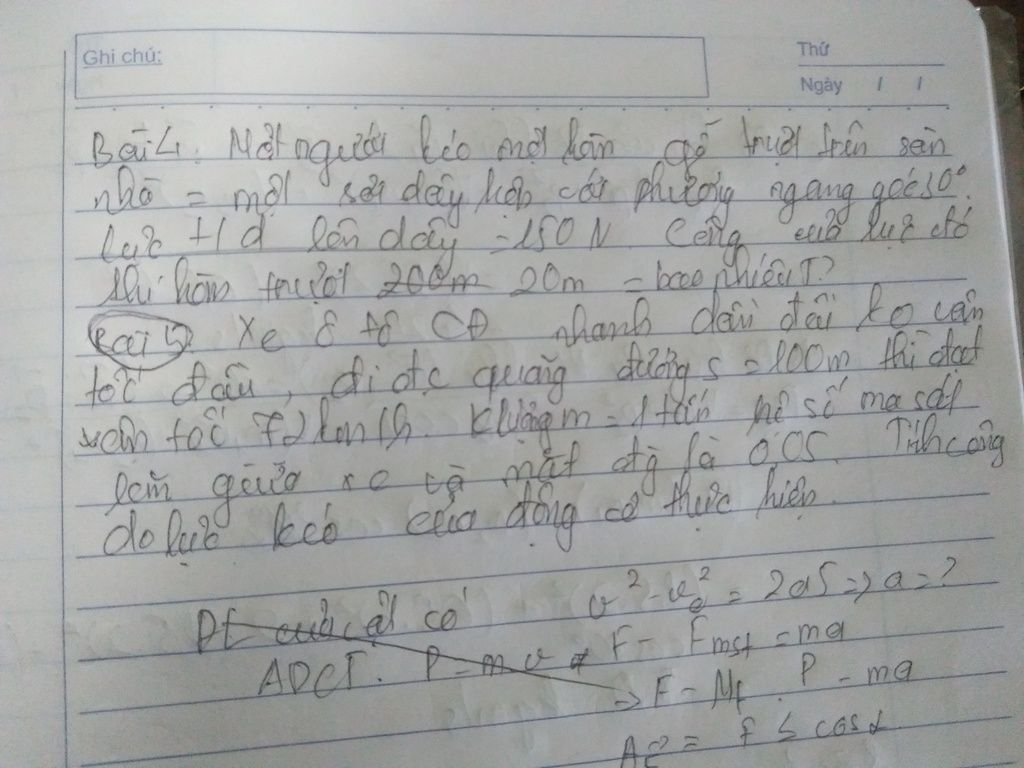 Ghi chú:
Thứ
Ngày / /
Bài 4. Một người kéo một hòm gỗ trượt trên sàn
nhà = một sợi dây hợp với phương ngang góc 30°.
lực t/d lên dây = 150 N. Công của lực đó
khi hòm trượt 200m 20m = bao nhiêu?
Bài 5. Xe ô tô CĐ nhanh dần đều ko vận
tốc đầu, đi đc quãng đường s = 100m thì đạt
vận tốc 72 km/h. K lượng m = 1 tấn hệ số ma sát
lăn giữa xe và mặt đg là 0,05. Tính công
do lực kéo của động cơ thực hiện.
Pt của vật có v² - v₀² = 2aS => a = ?
ADCT. P = m v F - Fmst = ma
=> F - Mt . P = ma
A = F S cosα